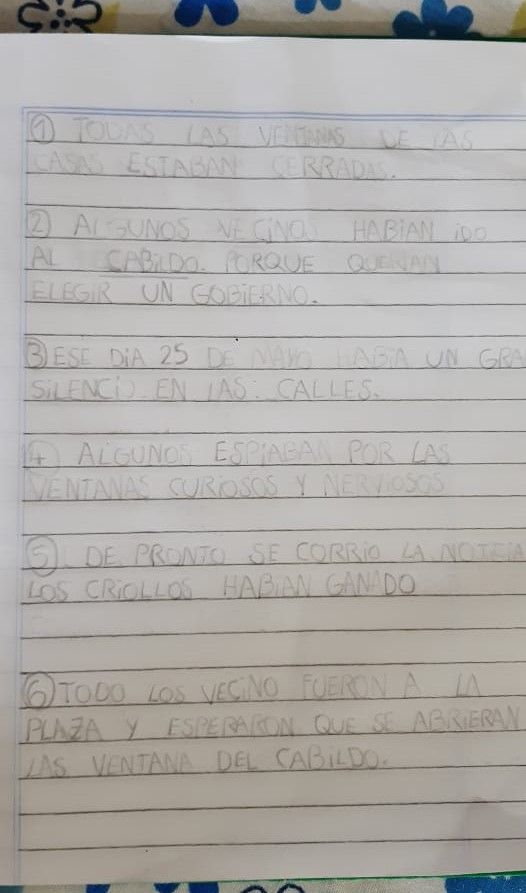 ① TODAS LAS VENTANAS DE LAS
CASAS ESTABAN CERRADAS.
② ALGUNOS VECINOS HABIAN IDO
AL CABILDO. PORQUE QUERIAN
ELEGIR UN GOBIERNO.
③ ESE DIA 25 DE MAYO HABIA UN GRA
SILENCIO EN LAS: CALLES.
④ ALGUNOS ESPIABAN POR LAS
VENTANAS CURIOSOS Y NERVIOSOS
⑤ DE PRONTO SE CORRIO LA NOTICIA
LOS CRIOLLOS HABIAN GANADO
⑥ TODO LOS VECINO FUERON A LA
PLAZA Y ESPERARON QUE SE ABRIERAN
LAS VENTANA DEL CABILDO.